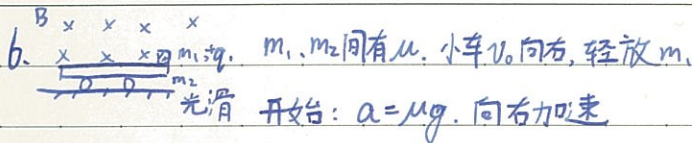 B × × × ×
6. × × × m₁,+q. m₁、m₂间有μ. 小车v₀向右, 轻放m₁
m₂
光滑 开始: a=μg. 向右加速